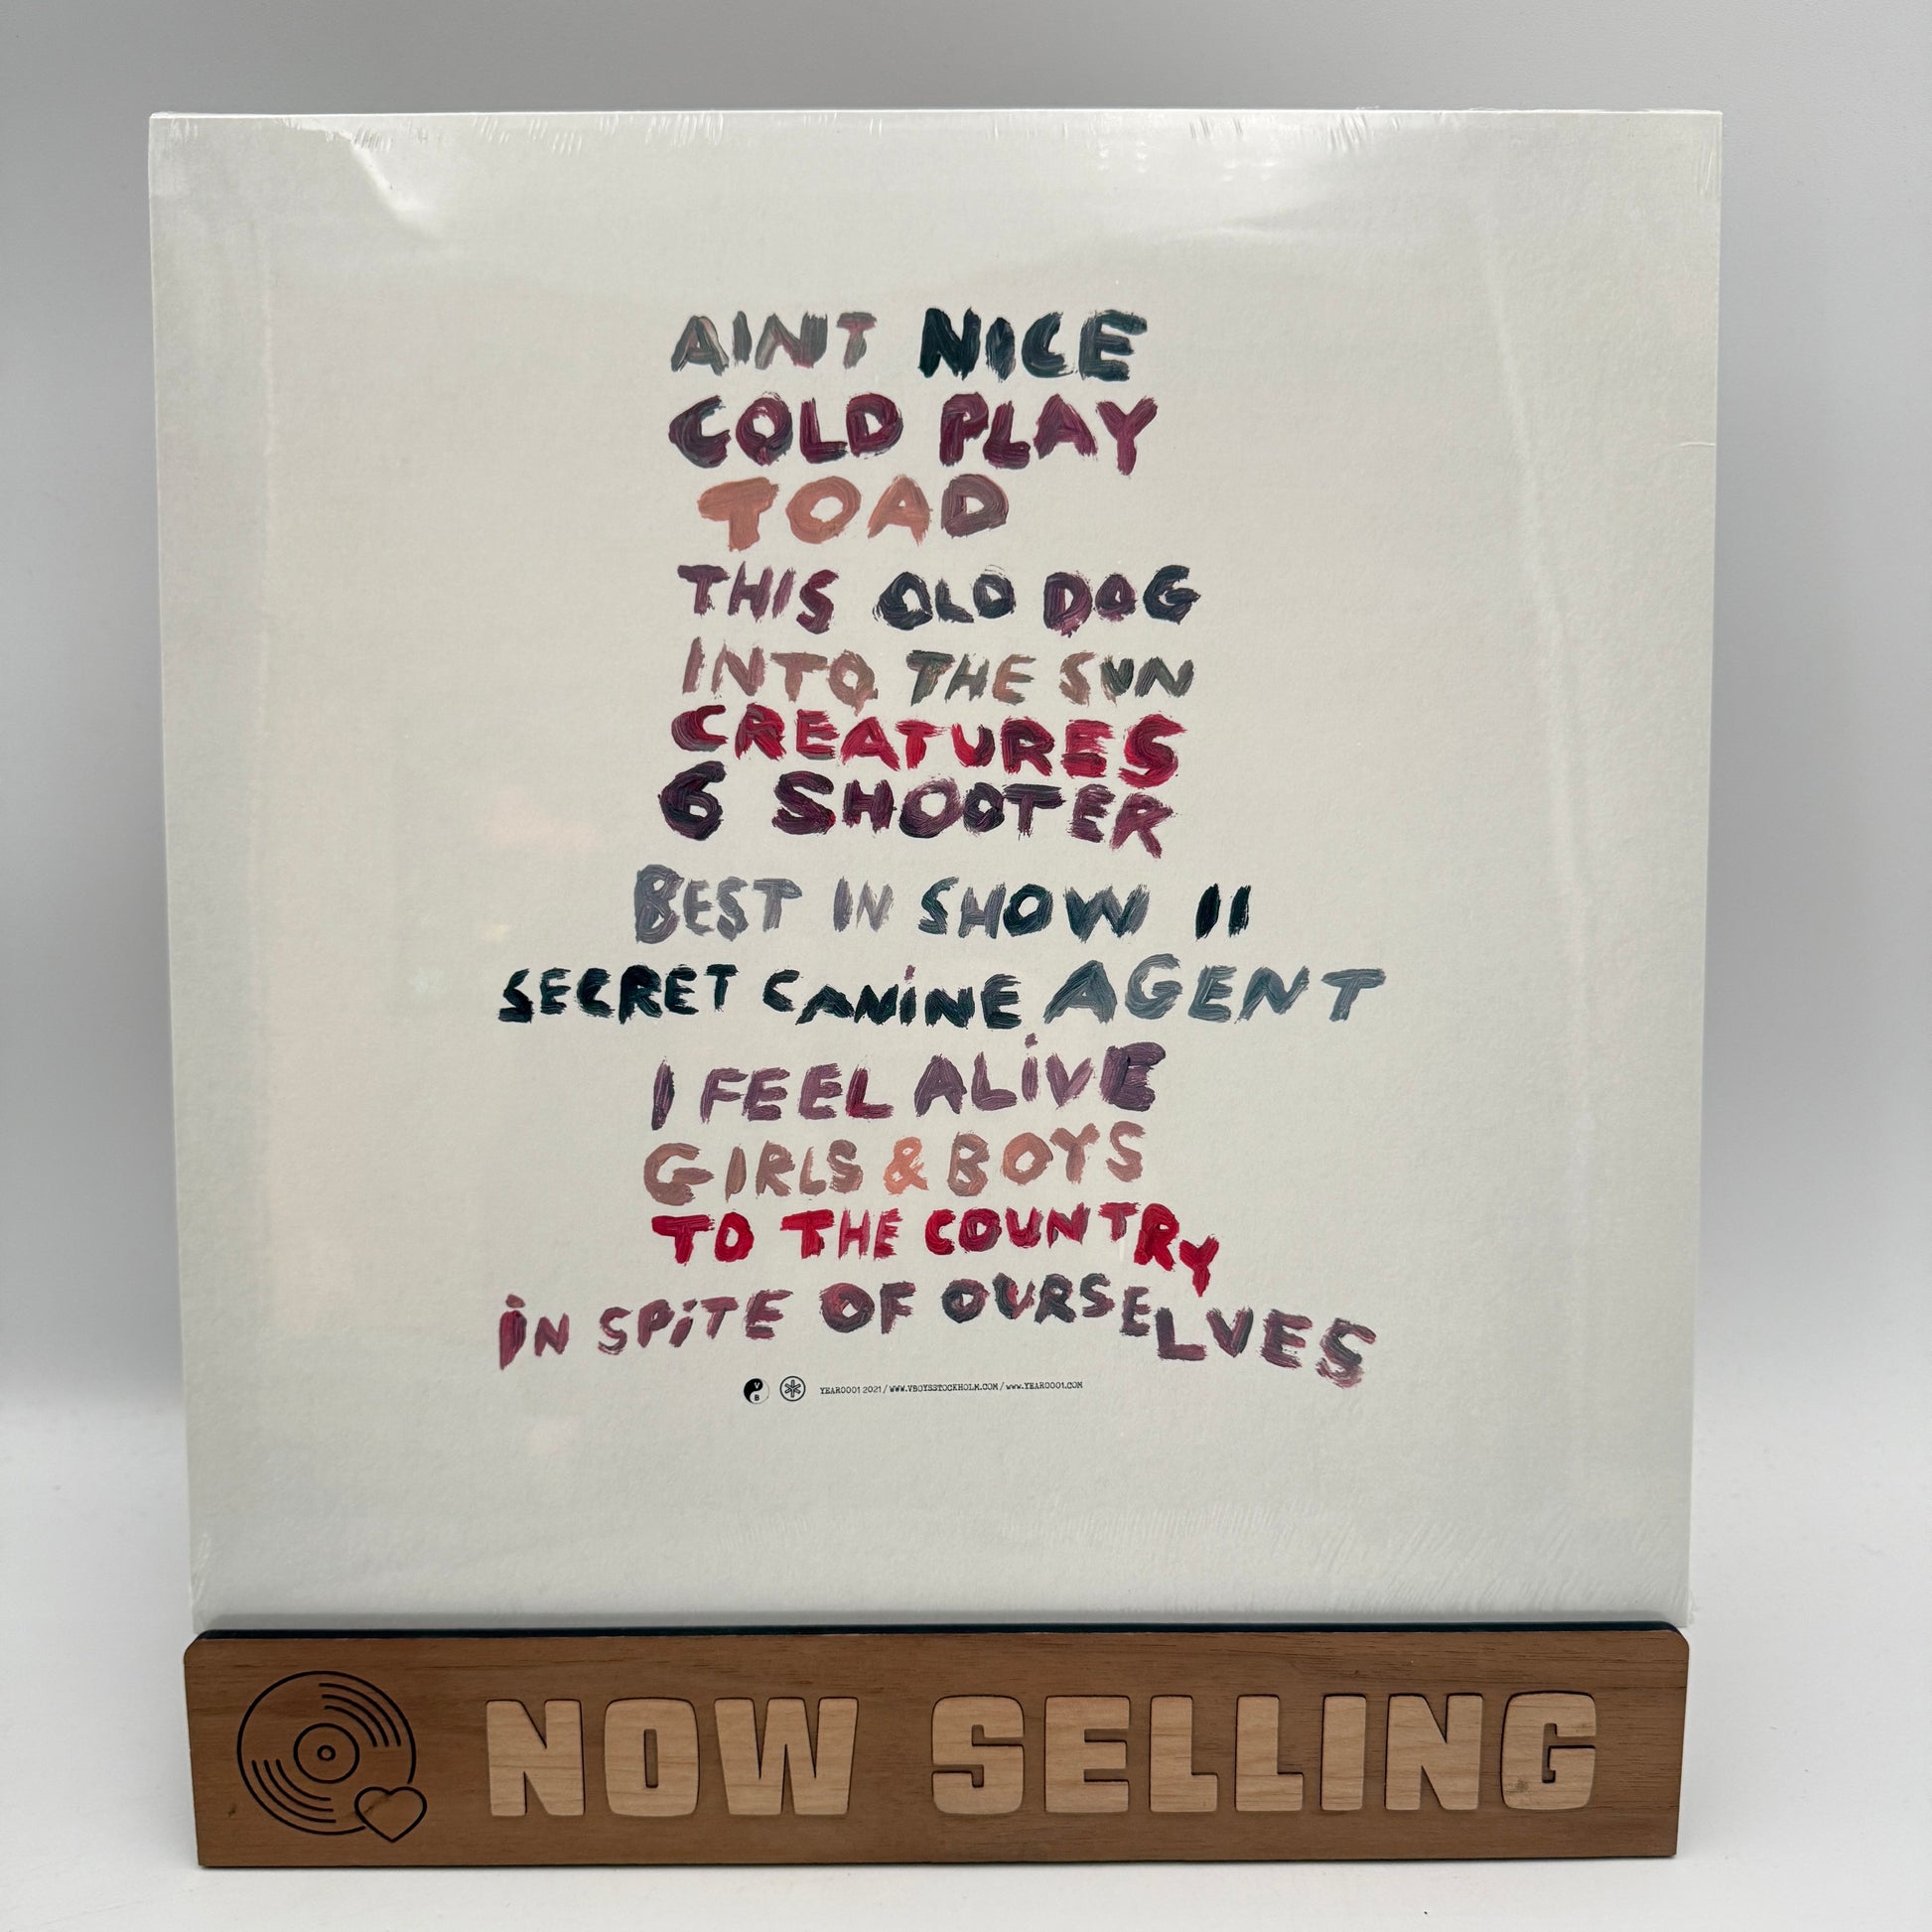 AINT NICE
COLD PLAY
TOAD
THIS OLD DOG
INTO THE SUN
CREATURES
6 SHOOTER
BEST IN SHOW II
SECRET CANiNE AGENT
I FEEL ALiVE
GIRLS & BOYS
TO THE COUNTRY
iN SPiTE OF OURSELVES
V B YEAR0001 2021 / WWW.VBOYSSTOCKHOLM.COM / WWW.YEAR0001.COM
NOW SELLING